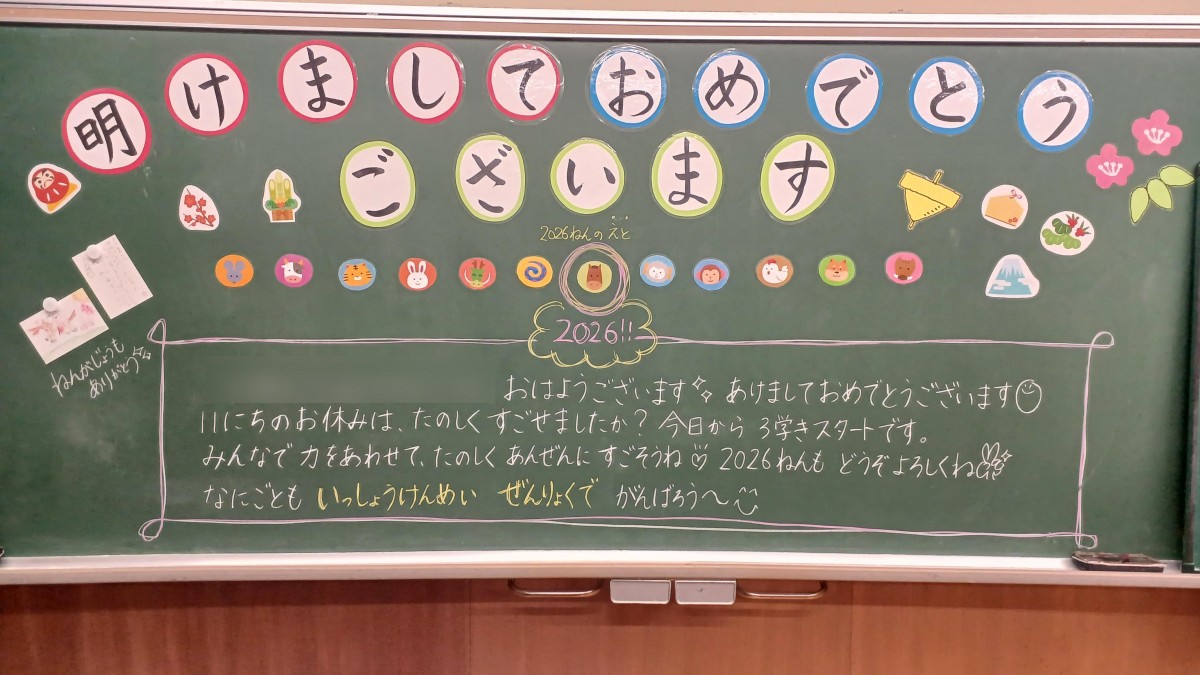 明けましておめでとう
ございます
2026ねんのえと
2026!!
ねんがじょうも
ありがとう
おはようございます あけましておめでとうございます
11にちのお休みは、たのしくすごせましたか？今日から3学きスタートです。
みんなで力をあわせて、たのしくあんぜんにすごそうね♡ 2026ねんもどうぞよろしくね
なにごとも いっしょうけんめい ぜんりょくで がんばろう〜